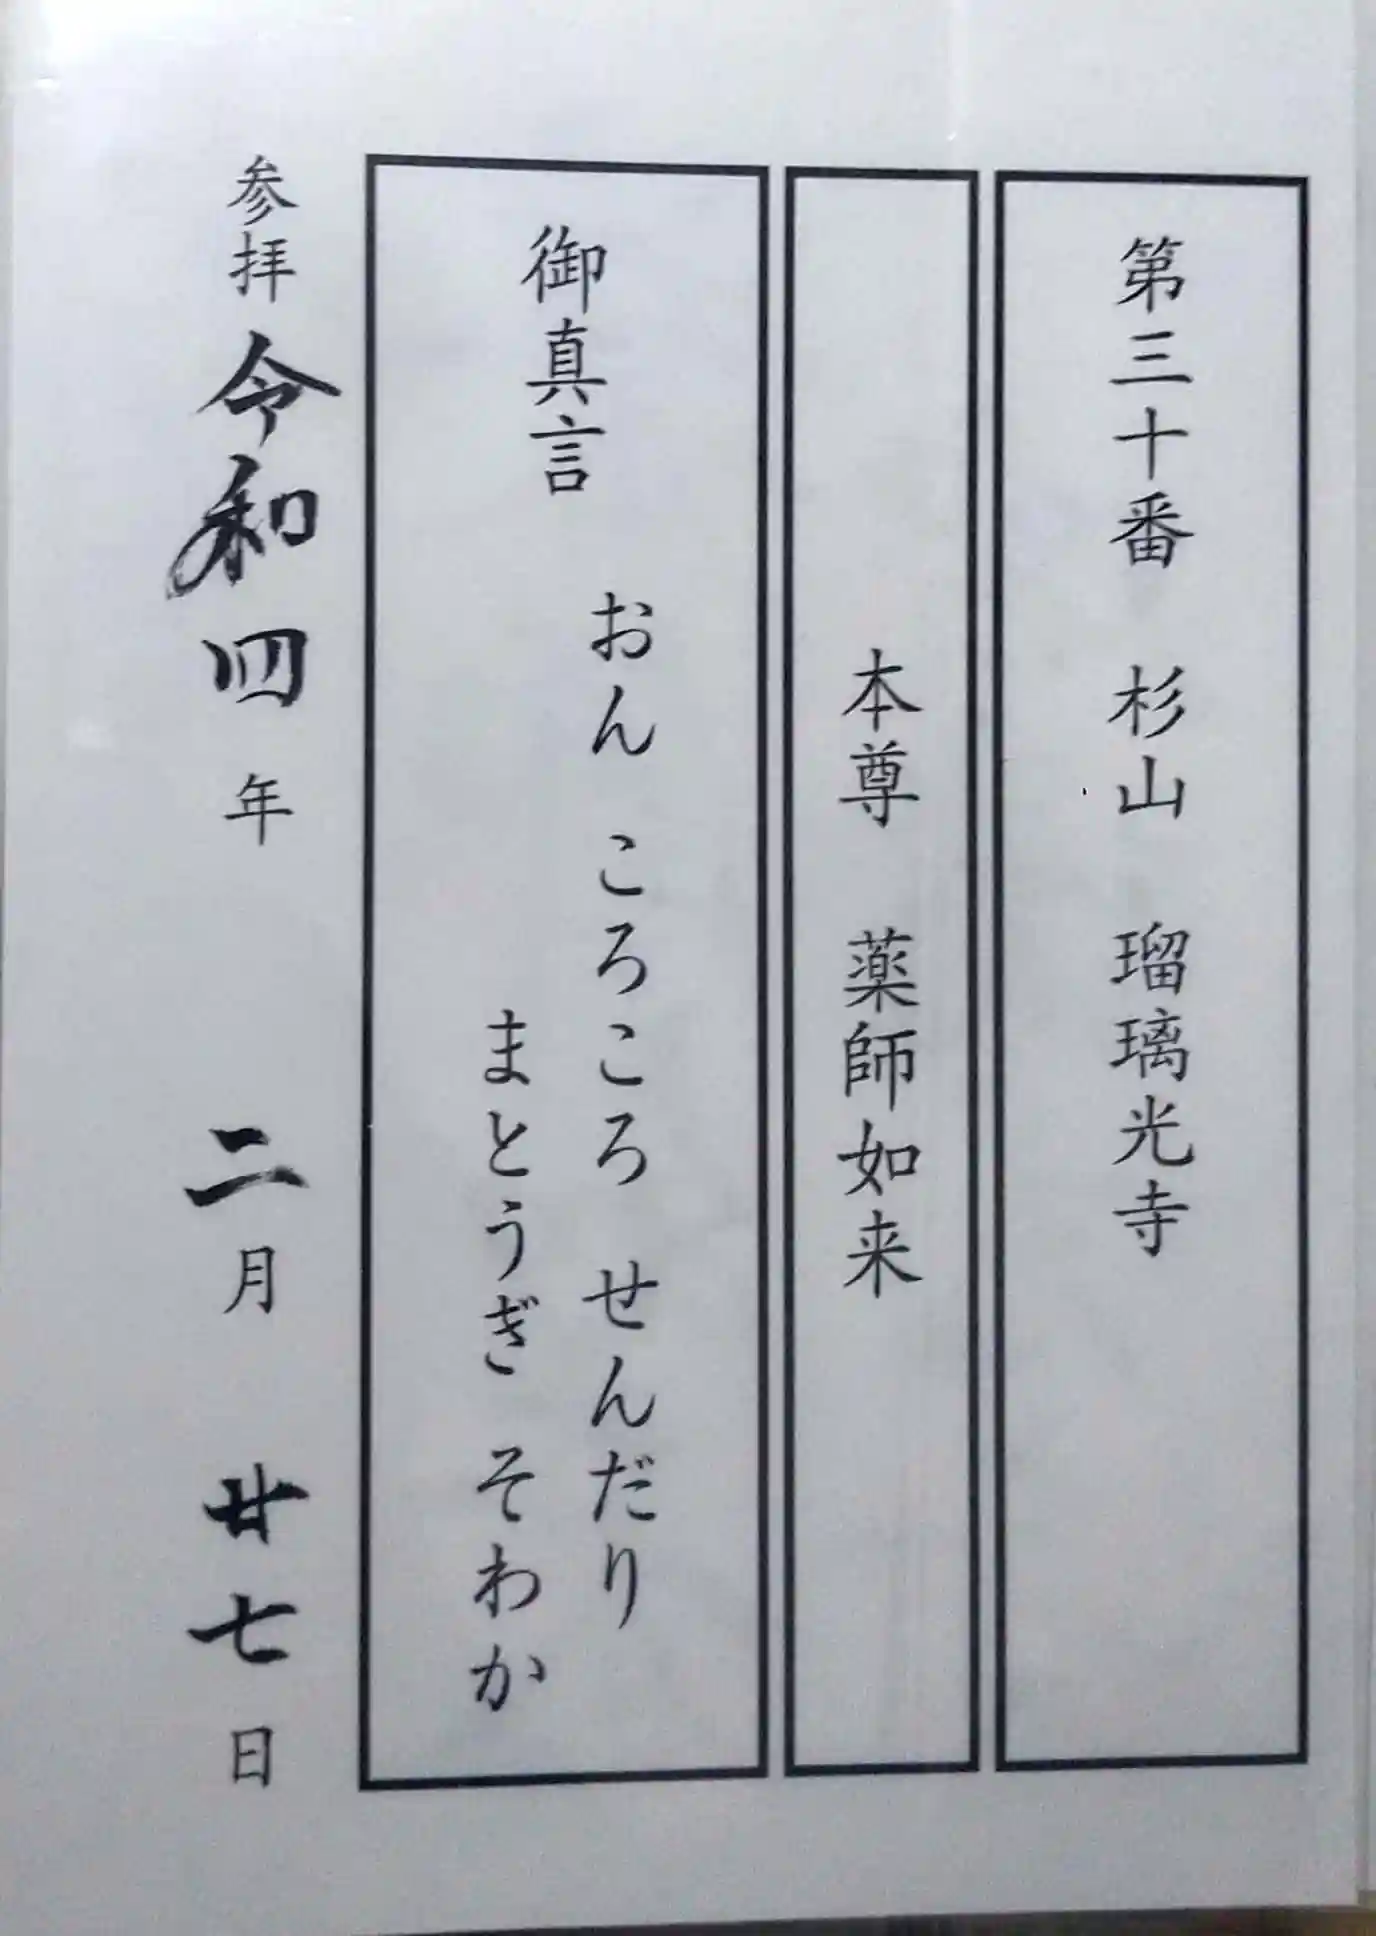 第三十番　杉山　瑠璃光寺
本尊　薬師如来
御真言
おん ころころ せんだり
まとうぎ そわか
参拝 令和四年 二月 廿七日